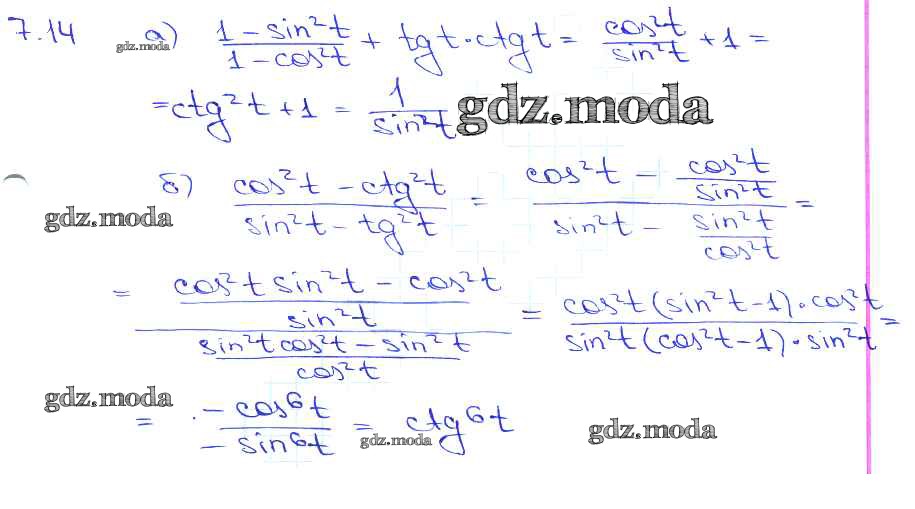 7.14 а) (1 - sin²t)/(1 - cos²t) + tg t · ctg t = cos²t/sin²t + 1 =
gdz.moda
= ctg²t + 1 = 1/sin²t
gdz.moda
б) (cos²t - ctg²t)/(sin²t - tg²t) = (cos²t - cos²t/sin²t)/(sin²t - sin²t/cos²t) =
gdz.moda
= ((cos²t sin²t - cos²t)/sin²t)/((sin²t cos²t - sin²t)/cos²t) = (cos²t (sin²t - 1) · cos²t)/(sin²t (cos²t - 1) · sin²t) =
gdz.moda
= (-cos⁶t)/(-sin⁶t) = ctg⁶t
gdz.moda
gdz.moda